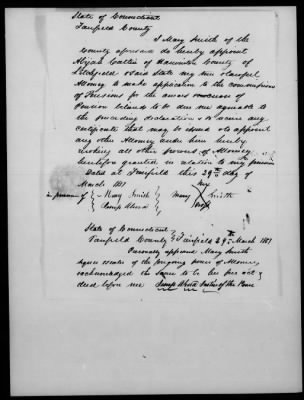 State of Connecticut
Fairfield County
I Mary Smith of the
County aforesaid do hereby appoint
Abijah Catlin of Harwinton County of
Litchfield & said State my true & lawful
Attorney to make application to the Commissioner
of Pensions for the
Pension to be due me agreeable to
the preceding declaration & receive any
certificate that may be issued & to appoint
any other Attorney under him hereby
revoking all other powers of Attorney
heretofore granted in relation to my pension
Dated at Fairfield this 29th day of
March 1851
in presence of { Mary Smith } Mary her X mark Smith
State of Connecticut
Fairfield County } Fairfield 29th March 1851
Personally appeared Mary Smith
signer & sealer of the foregoing power of Attorney
acknowledged the same to be her act &
deed before me Justice of the Peace